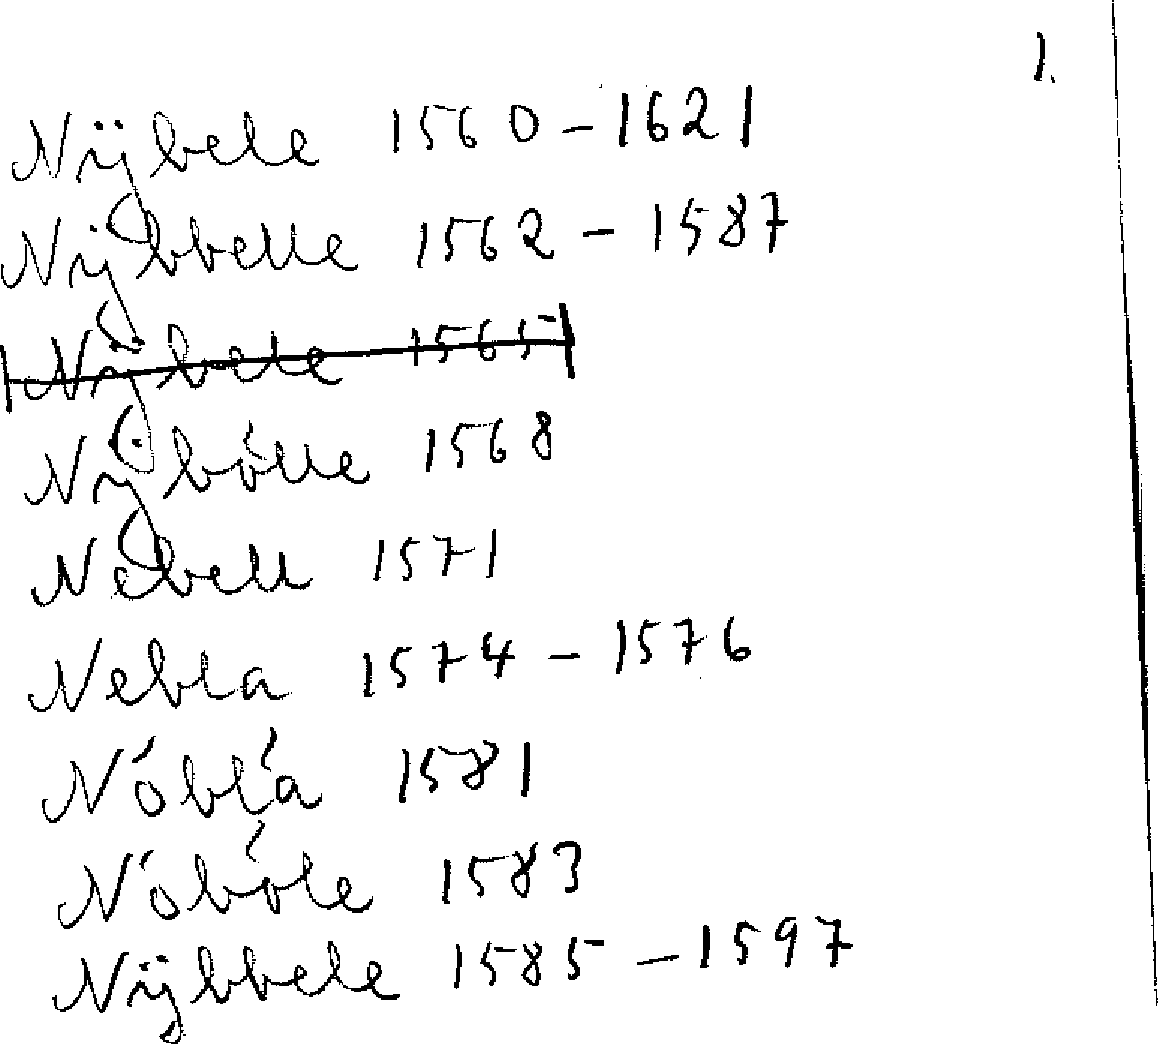 1.
Nÿbele 1560 - 1621
Nÿbbelle 1562 - 1587
Nÿbele 1565
Nÿbólle 1568
Nebell 1571
Nebla 1574 - 1576
Nóblá 1581
Nóbóle 1583
Nÿbbele 1585 - 1597